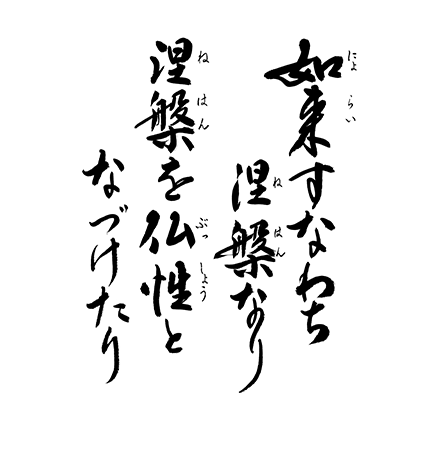 如来すなわち
涅槃なり
涅槃を仏性と
なづけたり
にょらい
ねはん
ねはん
ぶっしょう